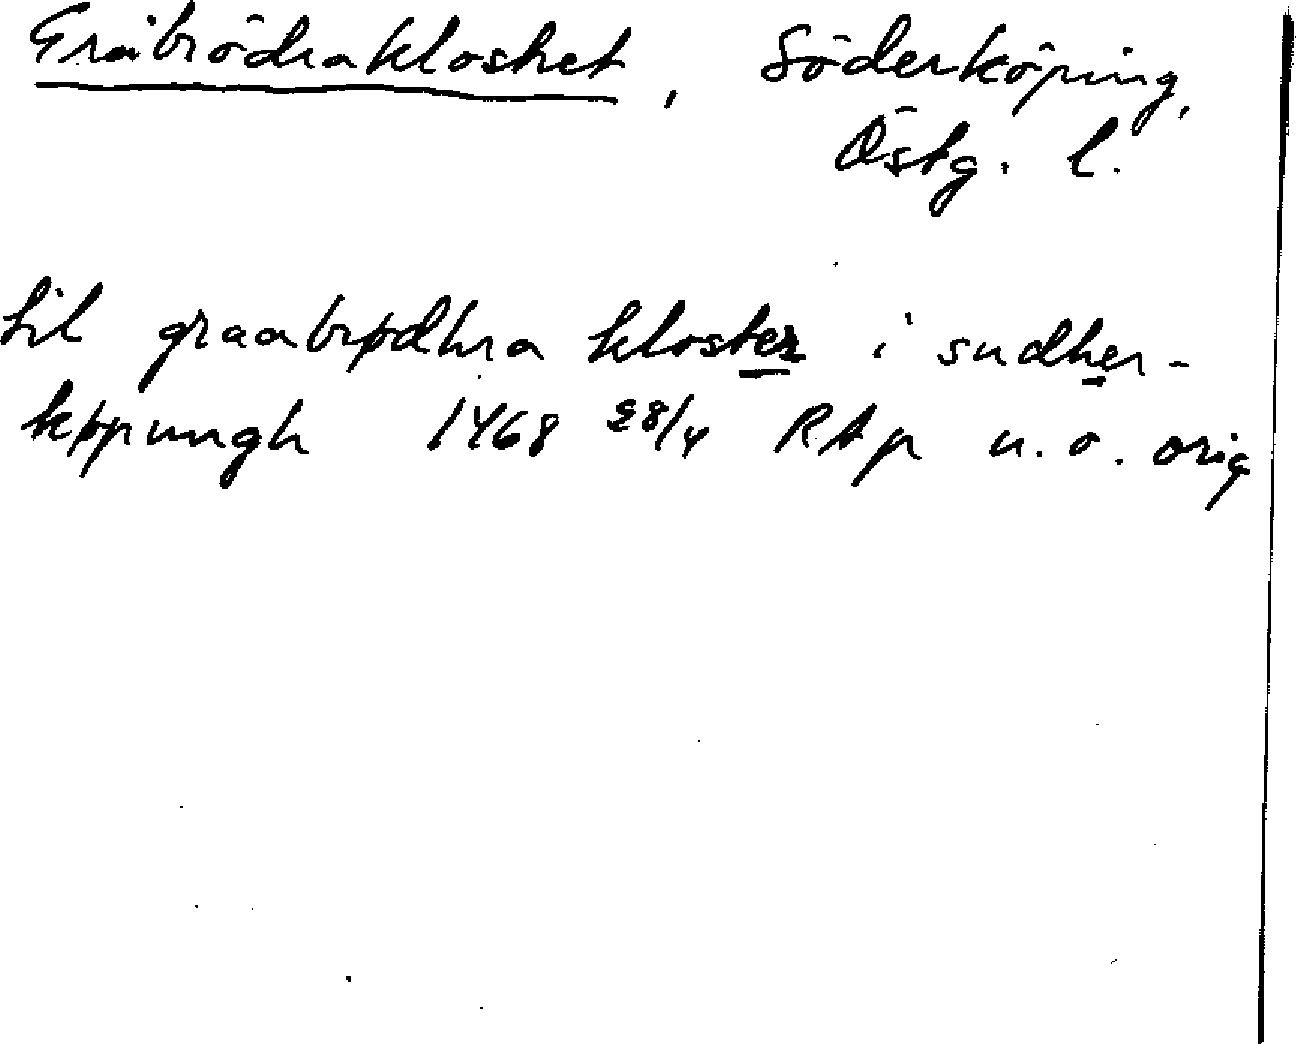 Gråbrödraklostret, Söderköping,
Östg. l.
til graabrødhra kloster i sudher-
køpungh 1468 28/4 RAp u. o. orig